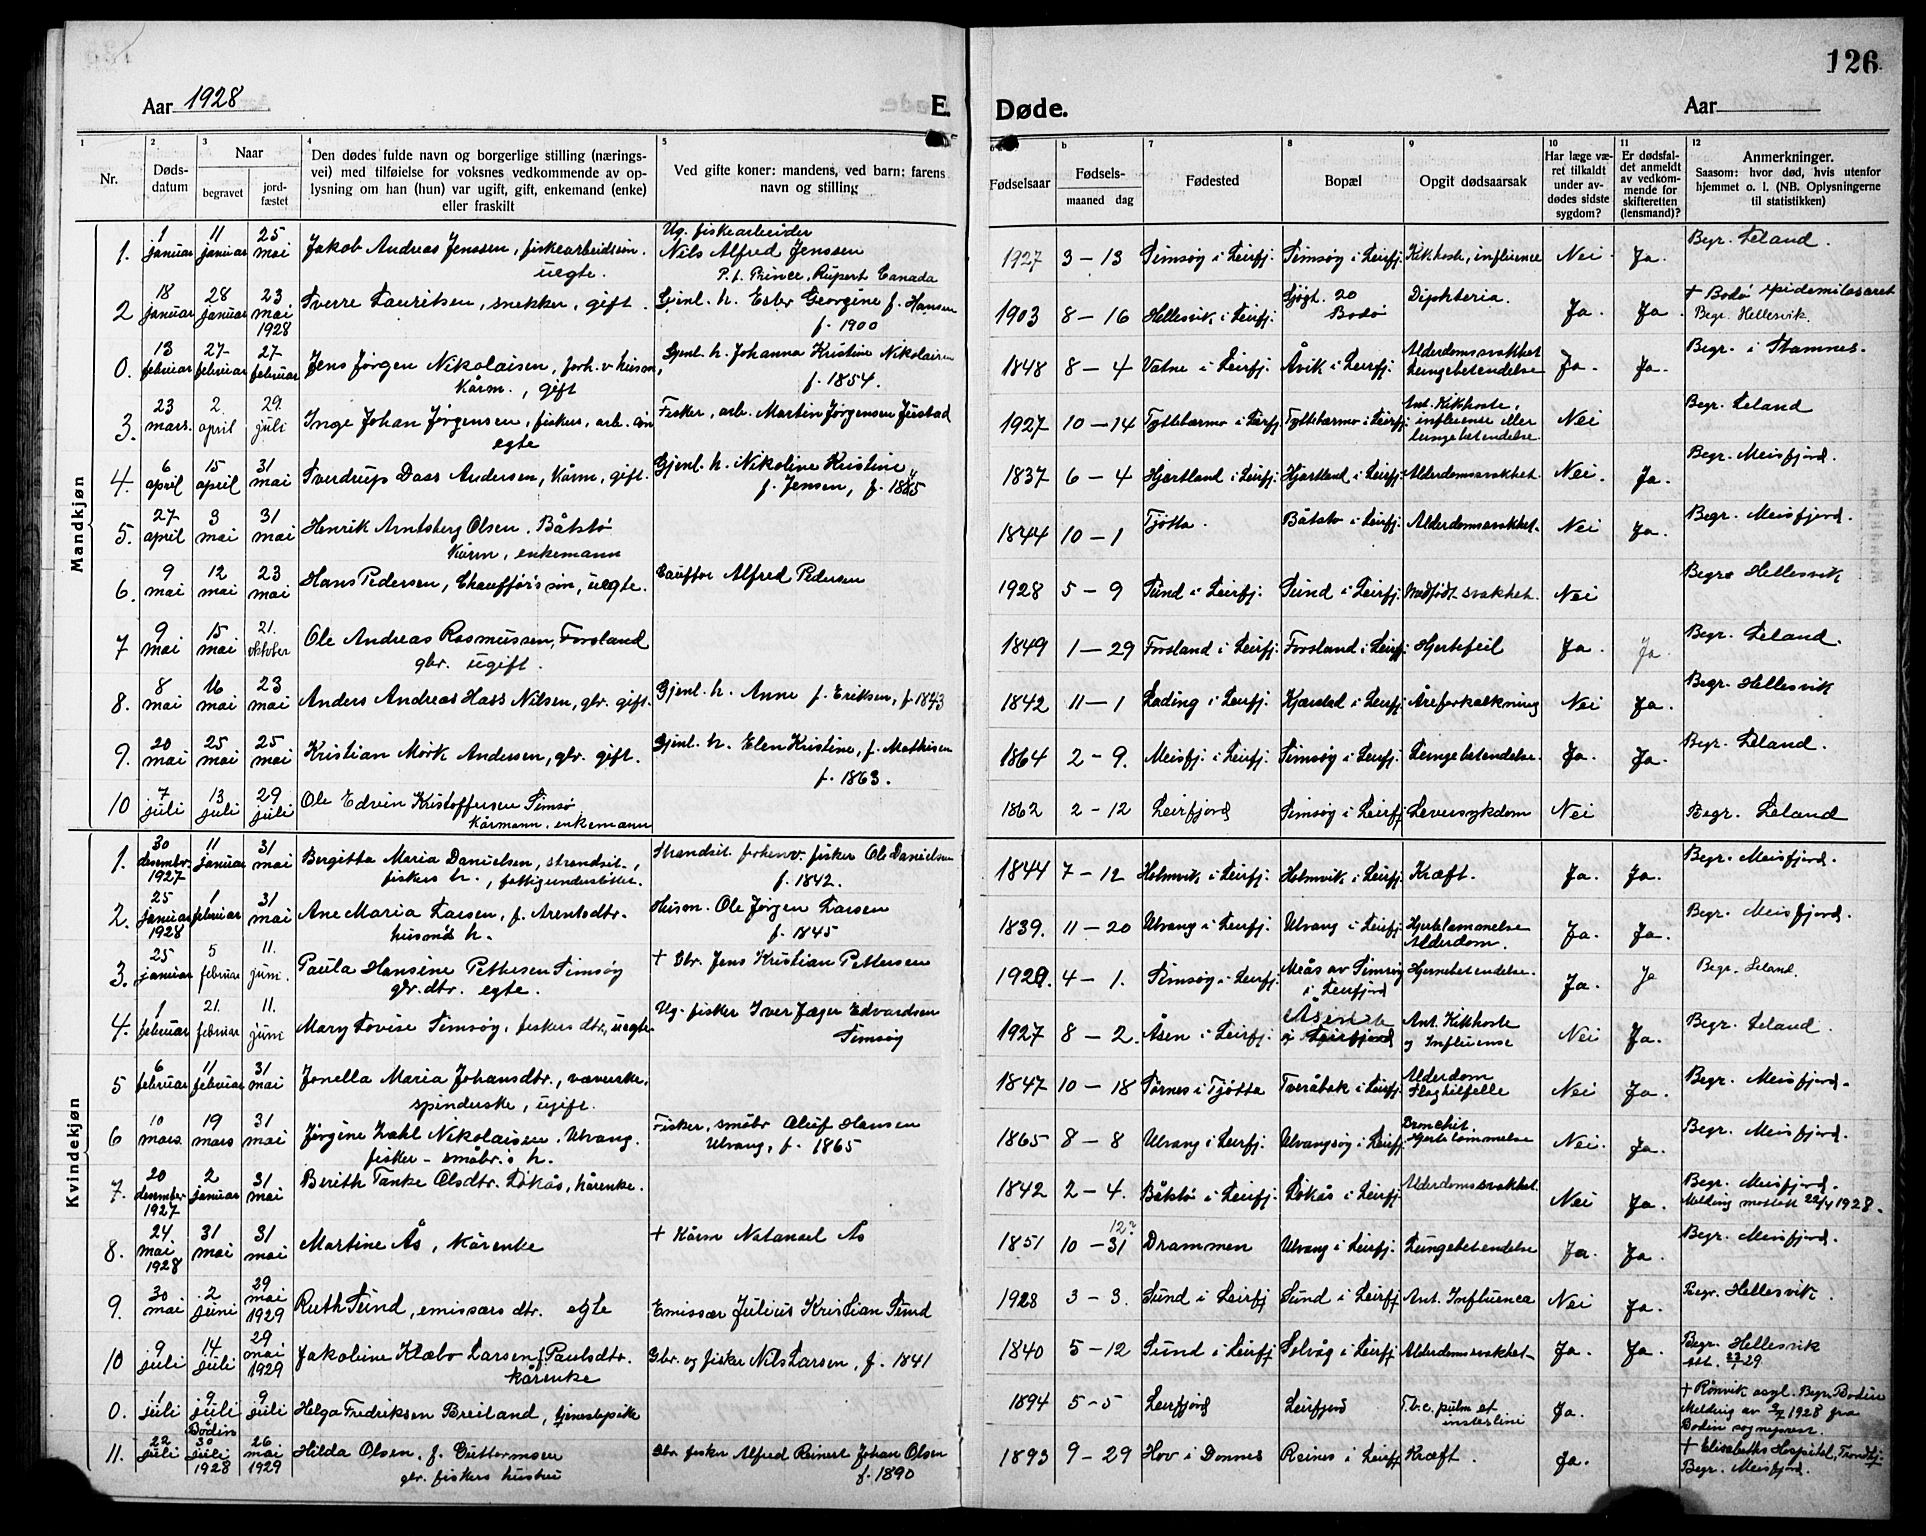 126
Aar 1928
E.
Døde.
Aar
1
Nr.
2
Døds-
datum
3
Naar
begravet
jord-
fæstet
4
Den dødes fulde navn og borgerlige stilling (nærings-
vei) med tilføielse for voksnes vedkommende av op-
lysning om han (hun) var ugift, gift, enkemand (enke)
eller fraskilt
5
Ved gifte koner: mandens, ved barn: farens
navn og stilling
Fødselsaar
b
Fødsels-
maaned dag
7
Fødested
8
Bopæl
9
Opgit dødsaarsak
10
Har læge væ-
ret tilkaldt
under av-
dødes sidste
sygdom?
11
Er dødsfal-
det anmeldt
av vedkom-
mende for
skifteretten
(lensmand)?
12
Anmerkninger.
Saasom: hvor død, hvis utenfor
hjemmet o. l. (NB. Oplysningerne
til statistikken)
Mandkjøn
1. 1 januar 11 januar 25 mai Jakob Andreas Jenssen, fiskearbeidersøn. uegte. Ug. fiskearbeider Nils Alfred Jenssen P.t. Prince, Rupert Canada 1927 3 - 13 Simsøy i Leirfj. Simsøy i Leirfj. Kikhoste, influense Nei. Ja. Begr. Leland.
2 18 januar 28 januar 23 mai 1928 Sverre Lauritsen, snekker, gift. Gjenl. h. Ester Georgine f. Hansen f. 1900 1903 8 - 16 Hellesvik i Leirfj. Sjøgt. 20 Bodø Difteria. Ja. Ja. + Bodø epidemilasaret Begr. Hellesvik.
0. 13 februar 27 februar 27 februar Jens Jørgen Nikolaisen, forh.v. husm, Kårm., gift Gjenl. h. Johanna Kristine Nikolaisen f. 1854. 1848 8 - 4 Vatne i Leirfj. Åvik i Leirfj. Alderdomssvakhet Lungebetendelse Ja. Ja. Begr. i Stamnes.
3. 23 mars. 2 april 29. juli Inge Johan Jørgensen, fisker, arb. søn egte Fisker, arb. Martin Jørgensen Justad 1927 10 - 14 Tyttebærmo i Leirfj. Tyttebærmo i Leirfj. Ant. Kikhoste, influense eller lungebetendelse. Nei Begr. Leland
4. 6 april 15 april 31 mai Sverdrup Dass Andersen, Kårm, gift. Gjenl. h. Nikoline Kristine f. Jensen, f. 1845 1837 6 - 4 Hjartland i Leirfj. Hjartland i Leirfj. Alderdomssvakhet. Nei. Ja. Begr. Meisfjord.
5. 27 april 3 mai 31 mai Henrik Arntsberg Olsen. Båtstø Kårm, enkemann 1844 10 - 1 Tjøtta. Båtstø i Leirfj. Alderdomssvakhet. Nei Ja. Begr. Meisfjord.
6. 9 mai 12 mai 23 mai Hans Pedersen, Chauffør's søn, uegte. Cauffør Alfred Pedersen 1928 5 - 9 Sund i Leirfj. Sund i Leirfj. Medfødt svakhet. Nei Begr. Hellesvik
7 9 mai 15 mai 21. oktober Ole Andreas Rasmussen, Forsland gbr. ugift. 1849 1 - 29 Forsland i Leirfj. Forsland i Leirfj. Hjertefeil Ja. Ja. Begr. Leland.
8. 8 mai 16 mai 23 mai Anders Andreas Hass Nilsen, gbr. gift. Gjenl. h. Anne f. Eriksen, f. 1843 1842 11 - 1 Lading i Leirfj. Kjærstad i Leirfj. Åreforkalkning Nei Ja. Begr. Hellesvik
9. 20 mai 25 mai 25 mai Kristian Mørk Andersen, gbr. gift. Gjenl. h. Elen Kristine, f. Mathisen f. 1863. 1864 2 - 9. Meisfj. i Leirfj. Simsøy i Leirfj. Lungebetendelse. Ja. Ja. Begr. Leland.
10 7 juli 13 juli 29 juli Ole Edvin Kristoffersen Simsø Kårmann. enkemann 1862 2 - 12 Leirfjord Simsøy i Leirfj Leversykdom Nei Begr. Leland
Kvindekjøn
1. 30 desember 1927 11 januar 31 mai Bergitta Maria Danielsen, strandsit., fiskers h., fattigunderstøttet. Strandsit. forhenv. fisker Ole Danielsen f. 1842. 1844 7 - 12 Holmvik i Leirfj. Holmvik i Leirfj. Kræft. Ja. Ja. Begr. Meisfjord.
2. 25 januar 1928 1 februar 31 mai Ane Maria Larsen, f. Arentsdtr. husm's h. Husm. Ole Jørgen Larsen f. 1845 1839. 11 - 20 Ulvang i Leirfj. Ulvang i Leirfj. Hjertelammelse Alderdom. Ja. Ja. Begr. Meisfjord.
3. 25 januar 5 februar 11. juni. Paula Hansine Pettersen Simsøy gbr. dtr. egte. + Gbr. Jens Kristian Pettersen 4 - 1. Simsøy i Leirfj. Meås av Simsøy i Leirfjord Hjernebetendelse. Ja. Ja Begr. Leland.
4. 1 februar 21. februar 11. juni Mary Lovise Simsøy, fiskers dtr, uegte. Ug. fisker Iver Jæger Edvardsen Simsøy 1927 8 - 2. Åsen i Leirfj. i Leirfjord Ant. Kikhoste og Influense Nei Ja. Begr. Leland.
5 6 februar 11 februar 31 mai Jonella Maria Johansdtr., væverske, spinderske, ugift. 1847 10 - 18 Tornes i Tjøtta Tveråbak i Leirfj. Alderdom Slagtilfelle Nei Ja. Begr. Meisfjord.
6 10 mars 19 mars 31 mai Jørgine Zahl Nikolaisen. Ulvang. fisker - småbr.'s h. Fisker, småbr Oluf Hansen Ulvang, f. 1865 1865 8 - 8 Ulvang i Leirfj. Ulvangsøy i Leirfj. Bronchit. Hjertelammelse Nei. Ja. Begr. Meisfjord.
7. 20 desember 1927 2 januar 31 mai Berith Tanke Olsdtr. Løkås, kårenke. 1842 2 - 4. Båtstø i Leirfj. Løkås i Leirfj. Alderdomssvakhet. Nei Ja. Begr. Meisfjord. Melding mottatt 22/4 1928.
8. 24. mai 1928 31 mai 31 mai Martine Ås, Kårenke + Kårm Natanael Ås 1851 10 - 31 12? Drammen Ulvang i Leirfj. Lungebetendelse Ja. Ja. Begr. Meisfjord.
9. 30 mai 2 juni 29 mai 1929 Ruth Sund, emissærs dtr. egte Emissær Julius Kristian Sund 1928 3 - 3. Sund i Leirfj Sund i Leirfj Ant. Influenca Nei Ja. Begr. Hellesvik.
10 9 juli 14 juli 29 mai 1929 Jakobine Klæbo Larsen f. Paulsdtr. kårenke Gbr. og fisker Nils Larsen, f. 1841 1840 5 - 12 Sund i Leirfj Solvåg i Leirfj Alderdomssvakhet Ja. Ja. Begr. Hellesvik
0. 1 juli 9 juli Bodin 9 juli Helga Fredriksen Breiland, tjenestepike 1894 5 - 5 Leirfjord Leirfjord T.b.c. pulm et Ja. + Rønvik asyl. Begr. Bodin Melding av 9/7 1928 fra Bodin sogneprest.
11. 22 juli 30 juli 1928 26 mai 1929 Hilda Olsen, f. Guttormsen gbr. fiskers hustru Gbr. fisker Alfred Reinert Johan Olsen f. 1890 1893 9 - 29 Hov i Dønnes Reines i Leirfj Kræft. Ja. + Elisabeths Hospital, Trondhj. Begr. Meisfjord.